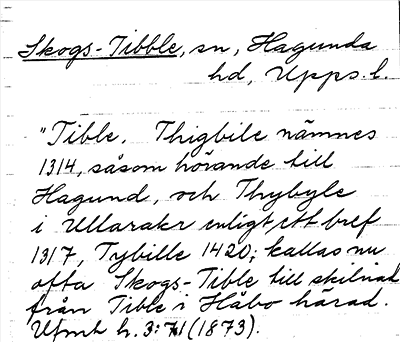 Skogs-Tibble, sn, Hagunda
hd, Upps. l.
"Tible. Thigbile nämnes
1314, såsom hörande till
Hagund, och Thybyle
i Ullarakr enligt ett bref
1317, Tybille 1420; kallas nu
ofta Skogs-Tible till skilnad
från Tible i Håbo härad.
Ufmt h. 3: (1873).